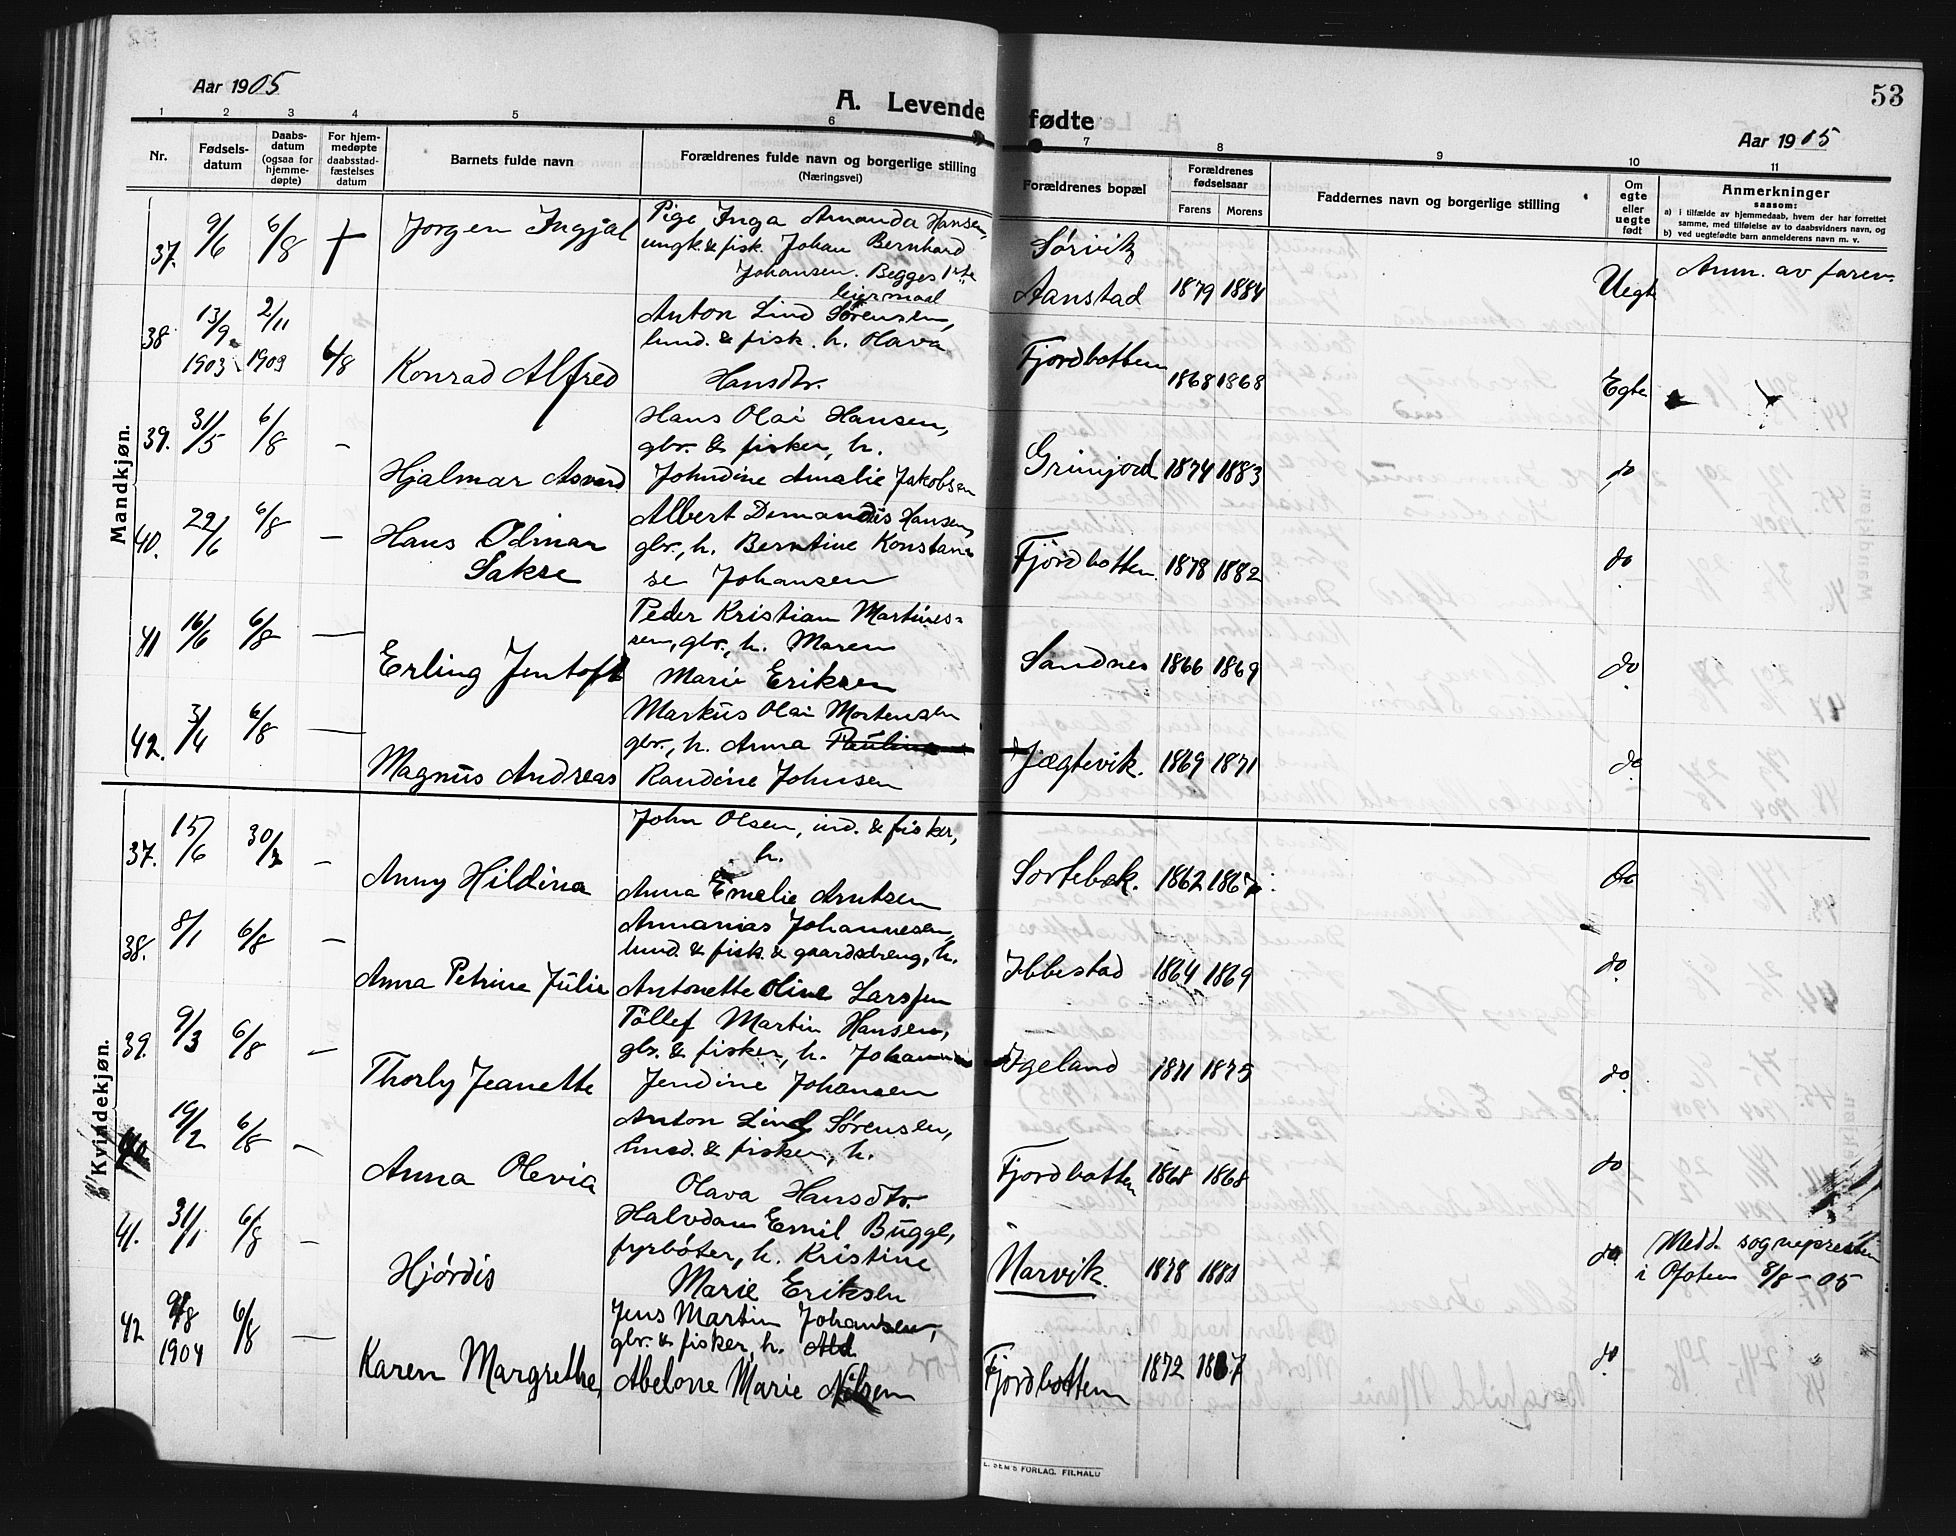 Aar 1905
A. Levende fødte
53
Aar 1905
1 2 3 4 5 6 7 8 9 10 11
Nr.
Fødsels-
datum
Daabs-
datum
(ogsaa for
hjemme-
døpte)
For hjem-
medøpte
daabsstad-
fæstelses
datum
Barnets fulde navn
Forældrenes fulde navn og borgerlige stilling
(Næringsvei)
Forældrenes bopæl
Forældrenes
fødselsaar
Farens Morens
Faddernes navn og borgerlige stilling
Om
egte
eller
uegte
født
Anmerkninger
saasom:
a) i tilfælde av hjemmedaab, hvem der har forrettet
samme, med tilføielse av to daabsvidners navn, og
b) ved uegtefødte barn anmelderens navn m. v.
Mandkjøn.
37. 9/6 6/8 + Jørgen Ingjal
Pige Inga Amanda Hansen,
ungk. & fisk. Johan Bernhard
Johansen. Begges 1ste
leiermaal
Sørvik
Aanstad 1879 1884 Uegte Anm. av faren.
38 13/9 1903 2/11 1903 6/8 Konrad Alfred
Anton Lind Sørensen,
lund. & fisk. h. Olava
Hansdtr.
Fjordbotten 1868 1868 Egte
39. 31/5 6/8 – Hjalmar Asvard
Hans Olai Hansen,
gbr. & fisker, h.
Johndine Amalie Jakobsen
Grimjord 1874 1883 do
40. 29/6 6/8 – Hans Odmar
Sakse
Albert Demandis Hansen,
gbr., h. Berntine Konstan
se Johansen
Fjordbotten 1878 1882 do
41 16/6 6/8 – Erling Jentoft
Peder Kristian Martines=
sen, gbr., h. Maren
Marie Eriksen
Sandnes 1866 1869 do
42. 3/4 6/8 – Magnus Andreas
Markus Olai Mortensen
gbr., h. Anna Pauline
Randine Johnsen
Jægtevik. 1869 1871 do
Kvindekjøn.
37. 15/6 30/7 – Anny Hildina
John Olsen, ind. & fisker,
h.
Anna Emelie Arntsen
Sortebek. 1862 1867 do
38. 8/1 6/8 – Anna Petrine Julie
Annanias Johannesen,
lund. & fisk. & gaardsdreng, h.
Antonette Oline Larssen
Ibbestad 1864 1869 do
39. 9/3 6/8 – Thorly Jeanette
Tollef Martin Hansen,
gbr. & fisker, h. Johanna
Jendine Johansen
Igeland 1871 1875 do
40. 19/2 6/8 – Anna Olevia
Anton Lind Sørensen,
lund. & fisker, h.
Olava Hansdtr.
Fjordbotten 1868 1868 do
41. 31/1 6/8 – Hjørdis
Halvdan Emil Bugge,
fyrbøter, h. Kristine
Marie Eriksen
Narvik. 1878 1881 do
Medd. sognepresten
i Ofoten 8/8 – 05
42 9/8 1904 6/8 – Karen Margrethe
Jens Martin Johansen,
gbr. & fisker, h.
Abelone Marie Nilsen
Fjordbotten 1872 1867 do
SEM'S FORLAG, FILHALD